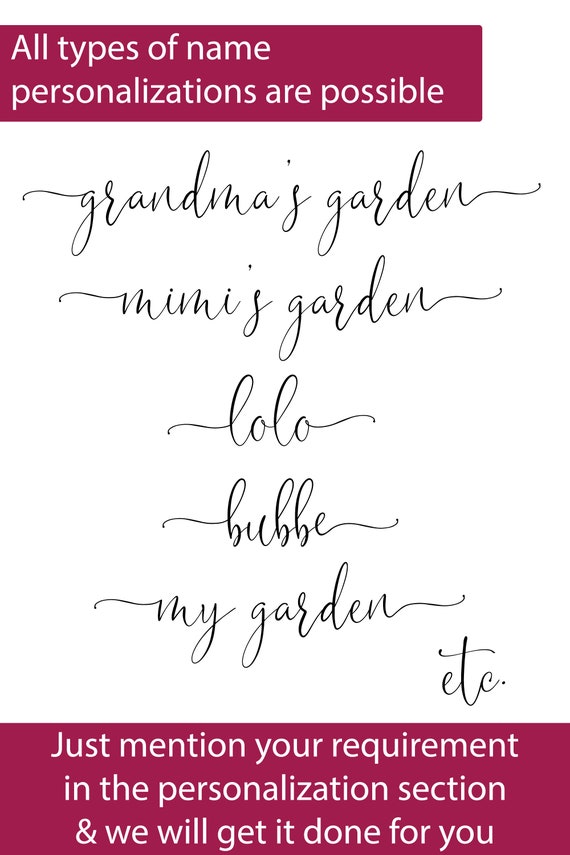 All types of name
personalizations are possible
grandma's garden
mimi's garden
lolo
bubbe
my garden
etc.
Just mention your requirement
in the personalization section
& we will get it done for you